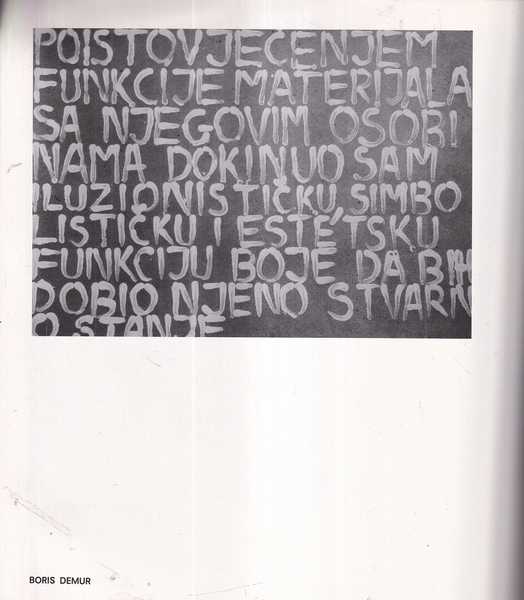 POISTOVJEĆENJEM
FUNKCIJE MATERIJALA
SA NJEGOVIM OSOBI
NAMA DOKINUO SAM
ILUZIONISTIČKU, SIMBO
LISTIČKU I ESTETSKU
FUNKCIJU BOJE DA BIH
DOBIO NJENO STVARN
O STANJE
BORIS DEMUR